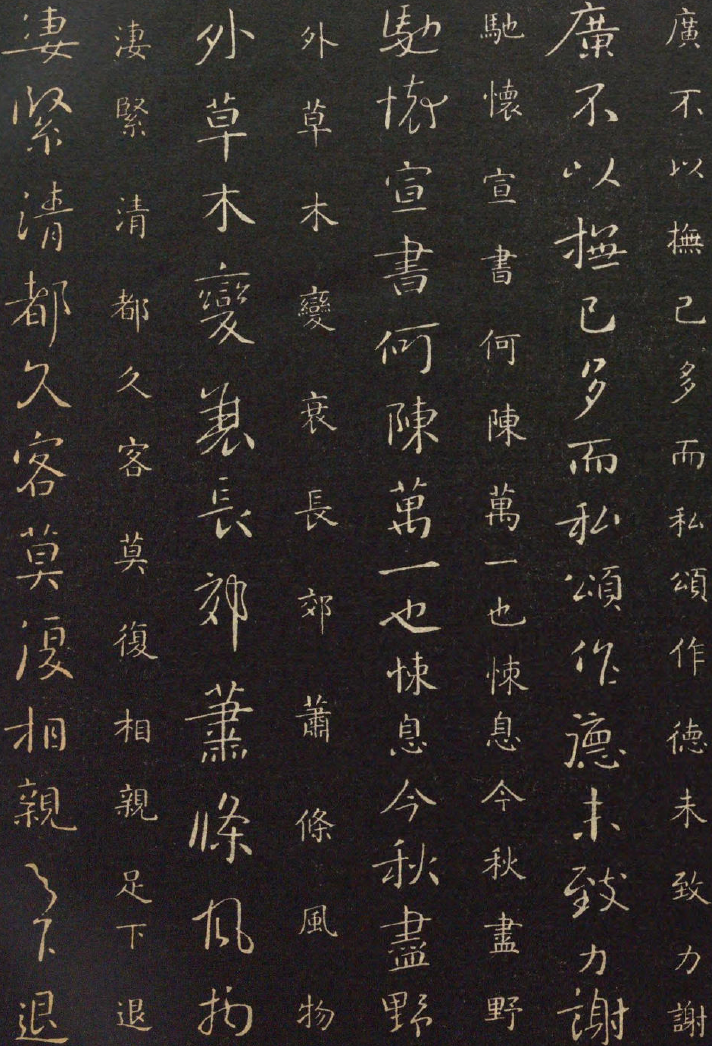 廣不以撫己多而私頌作德未致力謝
廣不以撫己多而私頌作德未致力謝
馳懷宣書何陳萬一也悚息今秋盡野
馳懷宣書何陳萬一也悚息今秋盡野
外草木變衰長郊蕭條風物
外草木變衰長郊蕭條風物
淒緊清都久客莫復相親足下退
淒緊清都久客莫復相親足下退